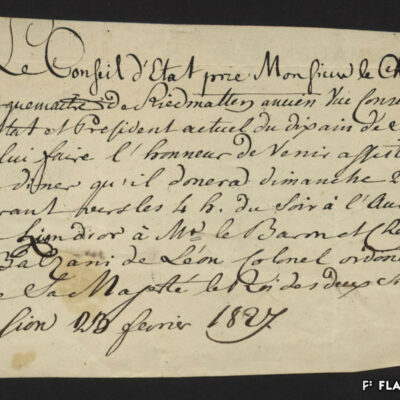 Le Conseil d'Etat prie Monsieur le Ch
de Riedmatten ancien Vice Conse
tat et Président actuel du dixain de
lui faire l'honneur de Venir assist
diner qu'il donera dimanche 2
rant vers les 4 h. du Soir à l'Au
Lion d'or à Mr. le Baron et Che
de Léon Colonel ordon
e Sa Majesté le Roi des deux Si
Sion 23 fevrier 1827.
F: FLA